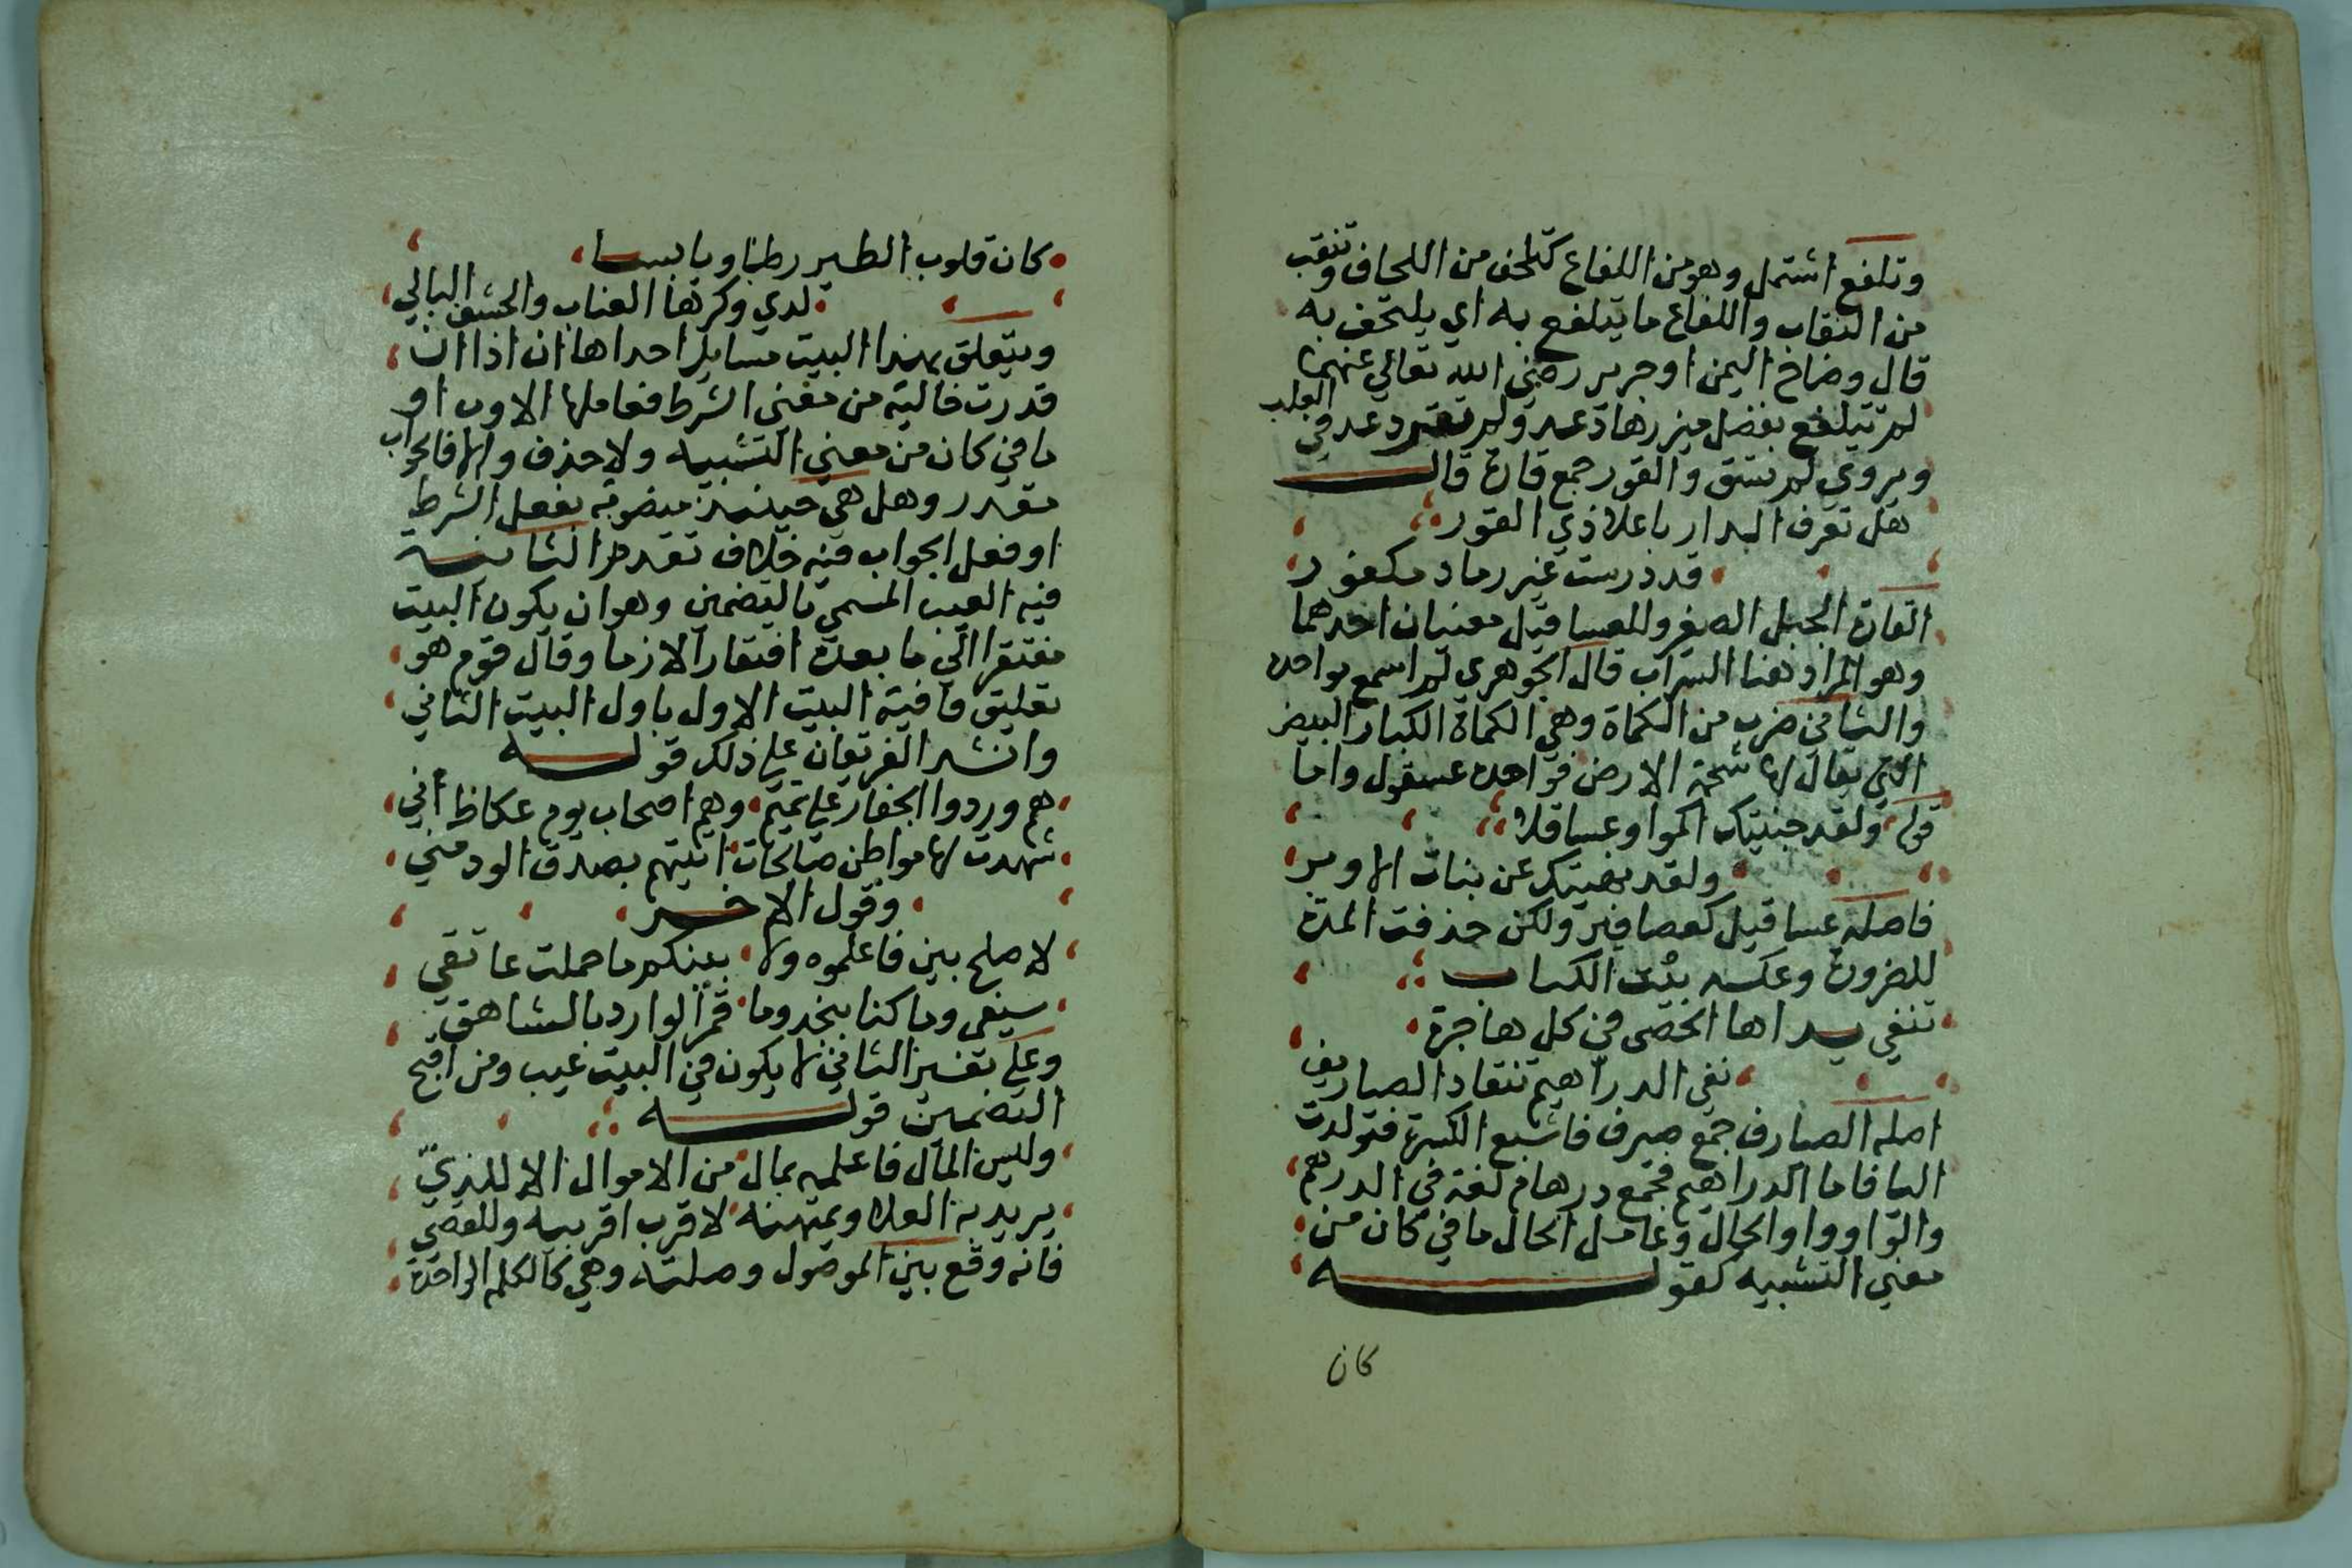 وتلفع اشتمل وهو من اللفاع كتلحف من اللحاف وتنقب
من النقاب واللفاع ما يتلفع به اي يلتحف به
قال وضاخ اليمن او جرير رضي الله تعالي عنهما
لم تتلفع بفضل ميزرها دعد ولم تغد دعد في العلب
ويروي لم تسق والقور جمع قارة قال
هل تعرف الدار باعلا ذي القور
قد درست غير رماد مكفور
القارة الجبل الصغير وللعساقيل معنيان احدهما
وهو المراد هنا السراب قال الجوهري لم اسمع بواحده
والثاني ضرب من الكماة وهي الكماة الكبار البيض
التي يقال لها شحمة الارض فواحده عسقول واما
قوله ولقد جنيتك اكموا وعساقلا
ولقد نهيتك عن بنات الاوبر
فاصله عساقيل كعصافير ولكن حذفت المدة
للضرورة وعكسه بيت الكتاب
تنفي يداها الحصى في كل هاجرة
نفي الدراهيم تنقاد الصياريف
اصله الصيارف جمع صيرف فاشبع الكسرة فتولدت
اليا فاما الدراهيم فجمع درهام لغة في الدرهم
والواو واو الحال وعامل الحال ما في كان من
معني التشبيه كقوله
كان
كان قلوب الطير رطبا ويابسا
لدي وكرها العناب والحشف البالي
ويتعلق بهذا البيت مسايل احداها ان اذا ان
قدرت خالية من معني الشرط فعاملها الاوب او
ما في كان من معني التشبيه ولا حذف والا فالجواب
مقدر وهل هي حينيذ منصوبة بفعل الشرط
او فعل الجواب فيه خلاف تقدم الثانية
فيه العيب المسمي بالتضمين وهو ان يكون البيت
مفتقرا الي ما بعده افتقارا لازما وقال قوم هو
تعليق قافية البيت الاول باول البيت الثاني
وانشد الفريقان علي ذلك قوله
هم وردوا الجفار علي تميم وهم اصحاب يوم عكاظ اني
شهدت لها مواطن صالحات اتيتهم بصدق الود مني
وقول الاخر
لا صلح بيني فاعلموه ولا بينكم ما حملت عاتقي
سيفي وما كنا بنجد وما قمر الواد بالشاهق
وعلي تفسير الثاني لا يكون في البيت عيب ومن اقبح
التضمين قوله
وليس المال فاعلمه بمال من الاموال الا للذي
يريد به العلا ويمتهنه لاقرب اقربيه وللقصي
فانه وقع بين الموصول وصلته وهي كالكلمه الواحدة